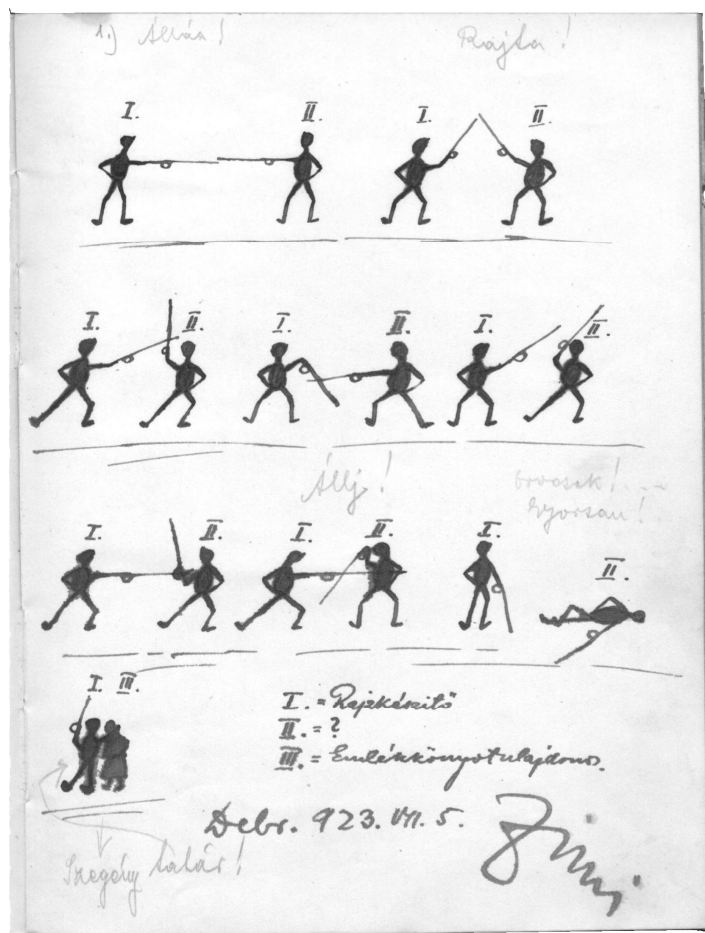 1.) Állás! Rajta!
I. II. I. II.
I. II. I. II. I. II.
Állj! Orvosok! ...
Gyorsan!
I. II. I. II. I. II.
I. III.
I. = Rajzkészítő
II. = ?
III. = Emlékkönyvtulajdonos.
Debr. 923. VII. 5.
Szegény talár!